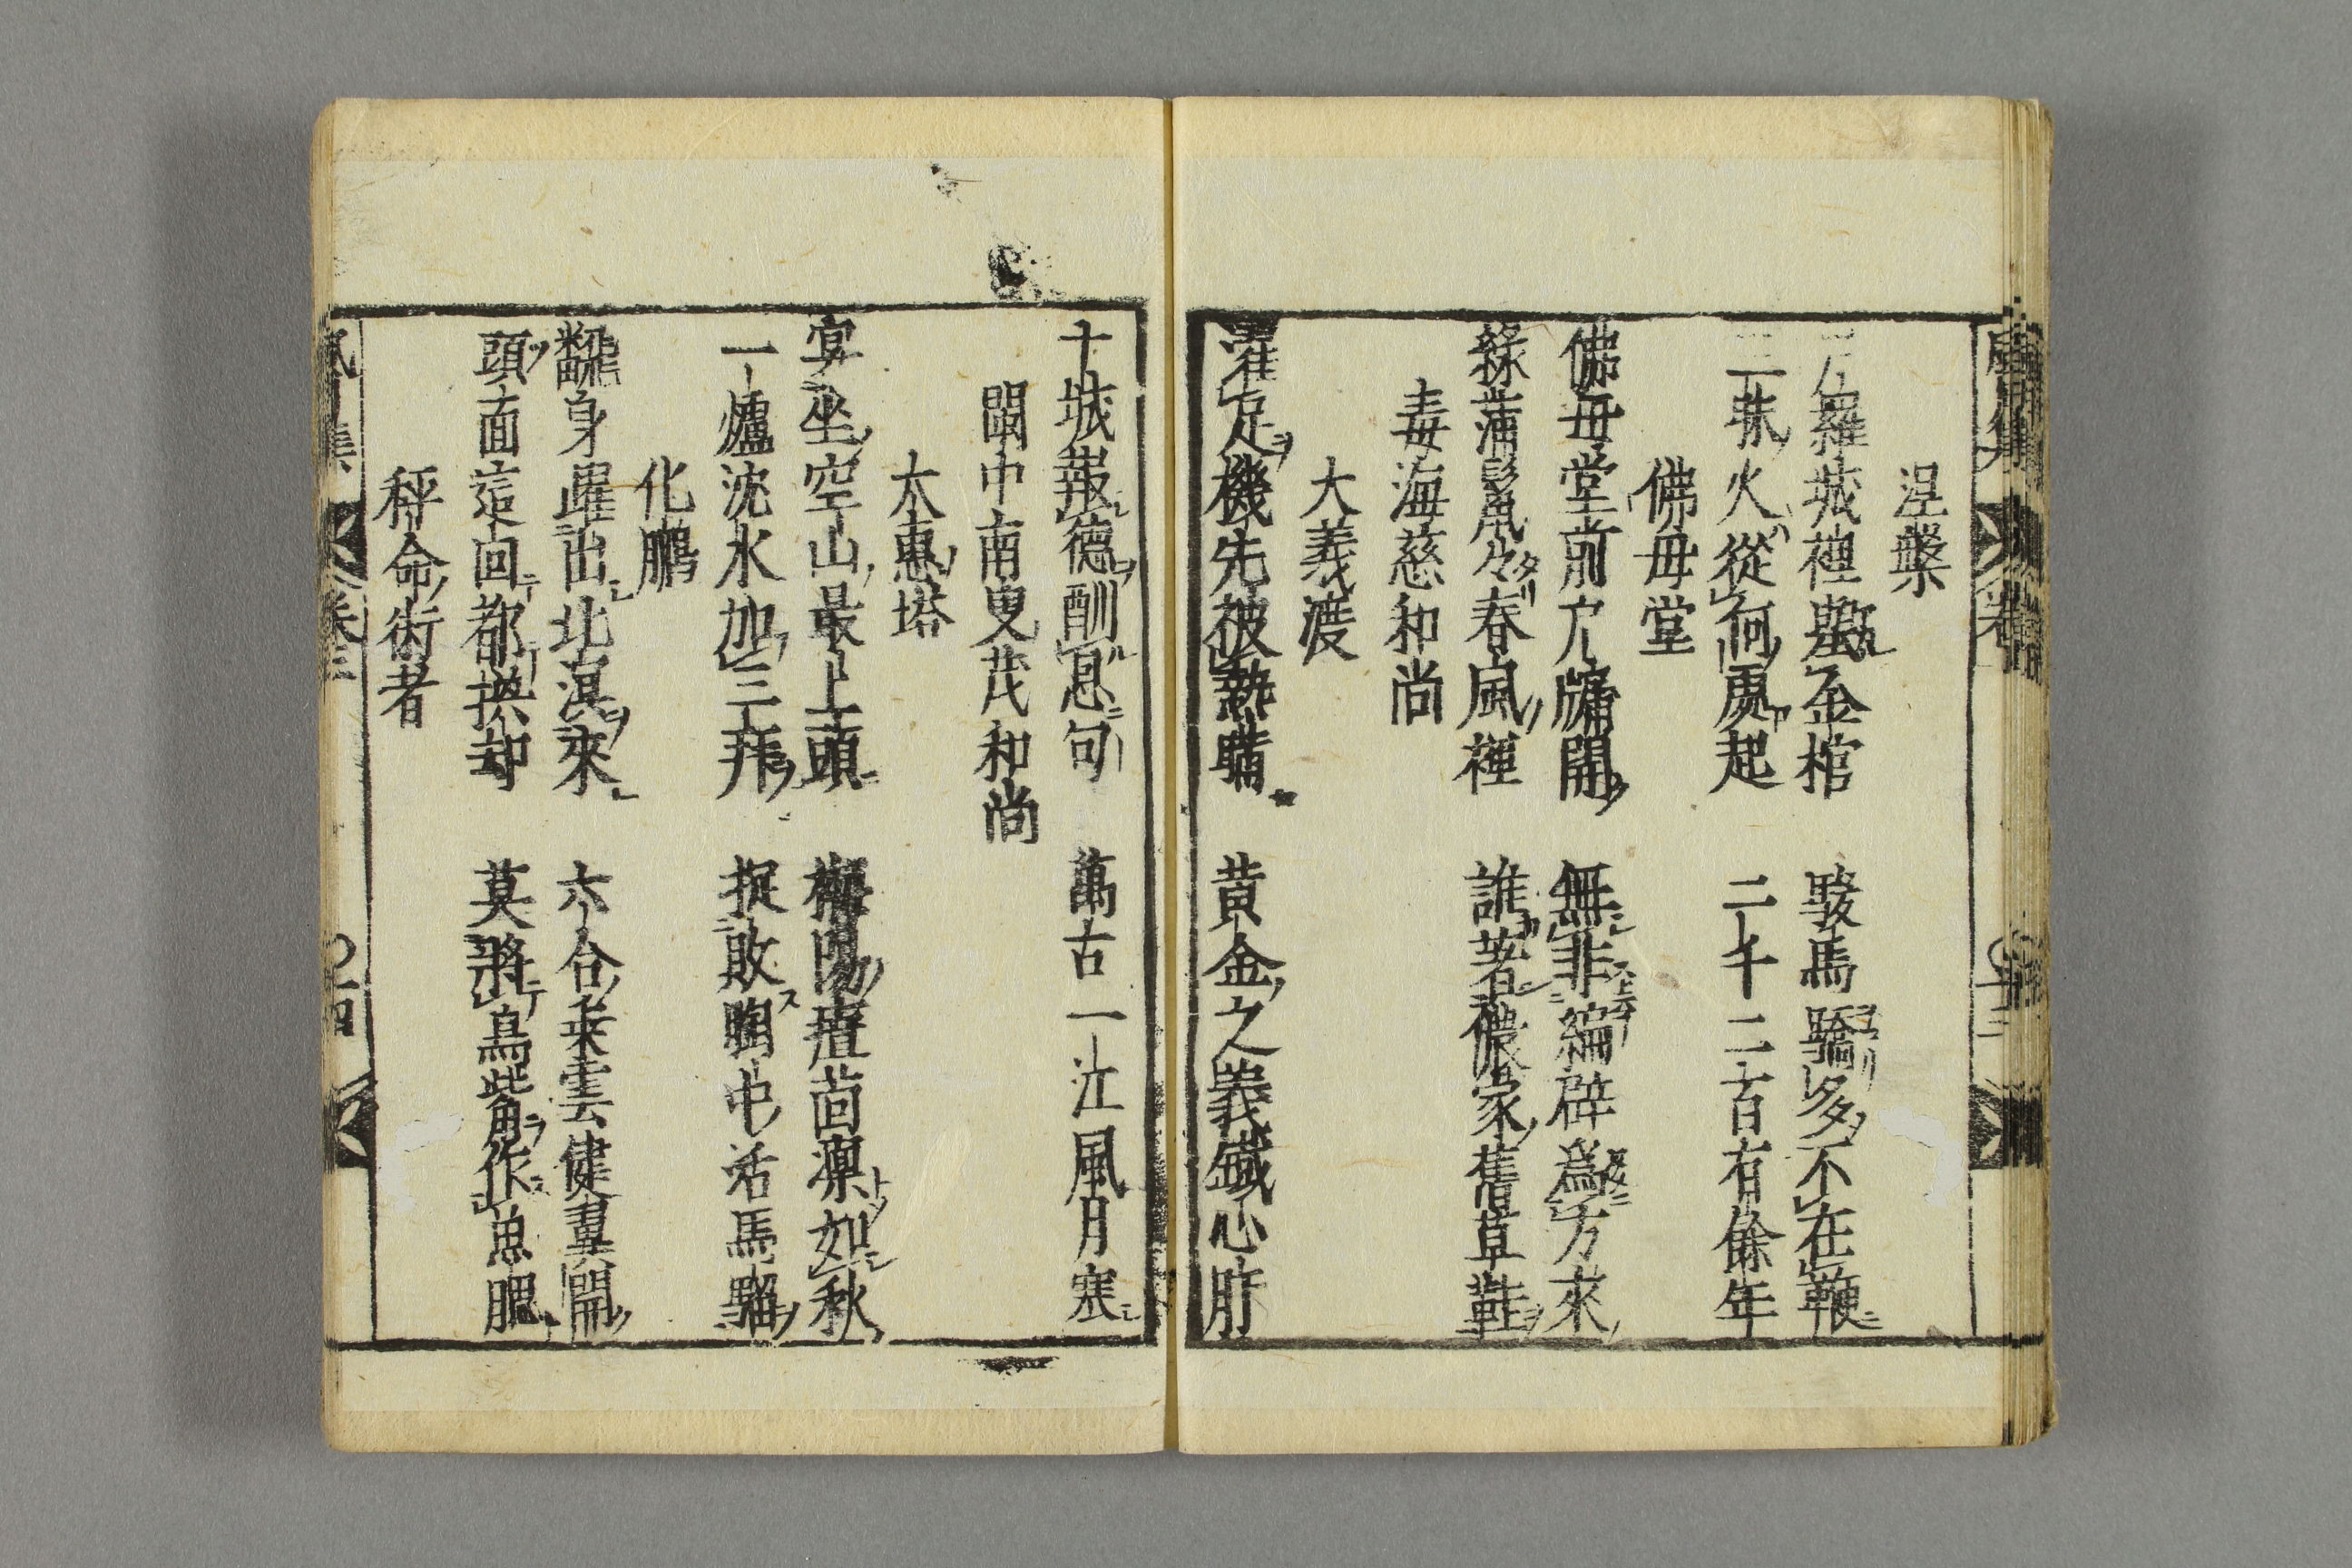 涅槃
羅城裡壂金棺　駿馬驕多不在鞭
三昧火從何處起　二千二百有餘年
佛母堂
佛母堂前戶牗開　無非編辟爲方來
綠蒲髼鬆々春風裡　誰著儂家舊草鞋
毒海慈和尚
大義渡
濯足機先被熱瞞　黃金之義鐵心肝
十城報德酬恩句　萬古一江風月寒
閩中南叟茂和尚
大惠塔
宴坐空山最上頭　梅陽瘴茴凛如秋
一爐沈水加三拜　捉敗胸中活馬騮
化鵬
翻身躍出北溟來　六合垂雲健翼開
頭面這回都換却　莫將烏觜作魚腮
秤命術者
卷三